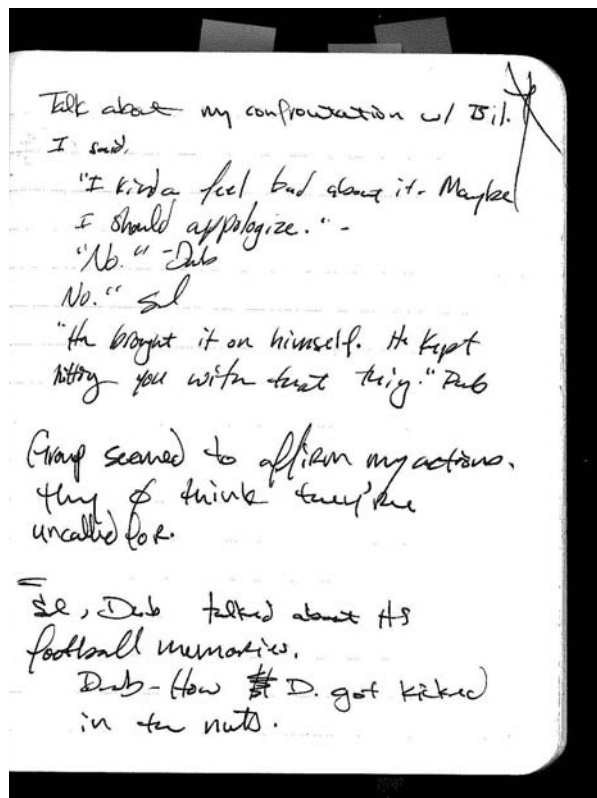 Talk about my confrontation w/ Bil.
I said,
"I kinda feel bad about it. Maybe
I should appologize." -
"No." - Dub
No." Sal
"He brought it on himself. He kept
hitting you with that thing." Dub
Group seemed to affirm my actions.
they ∅ think they're
uncalled for.
Sal, Dub talked about HS
football memories.
Dub - How D. got kicked
in the nuts.